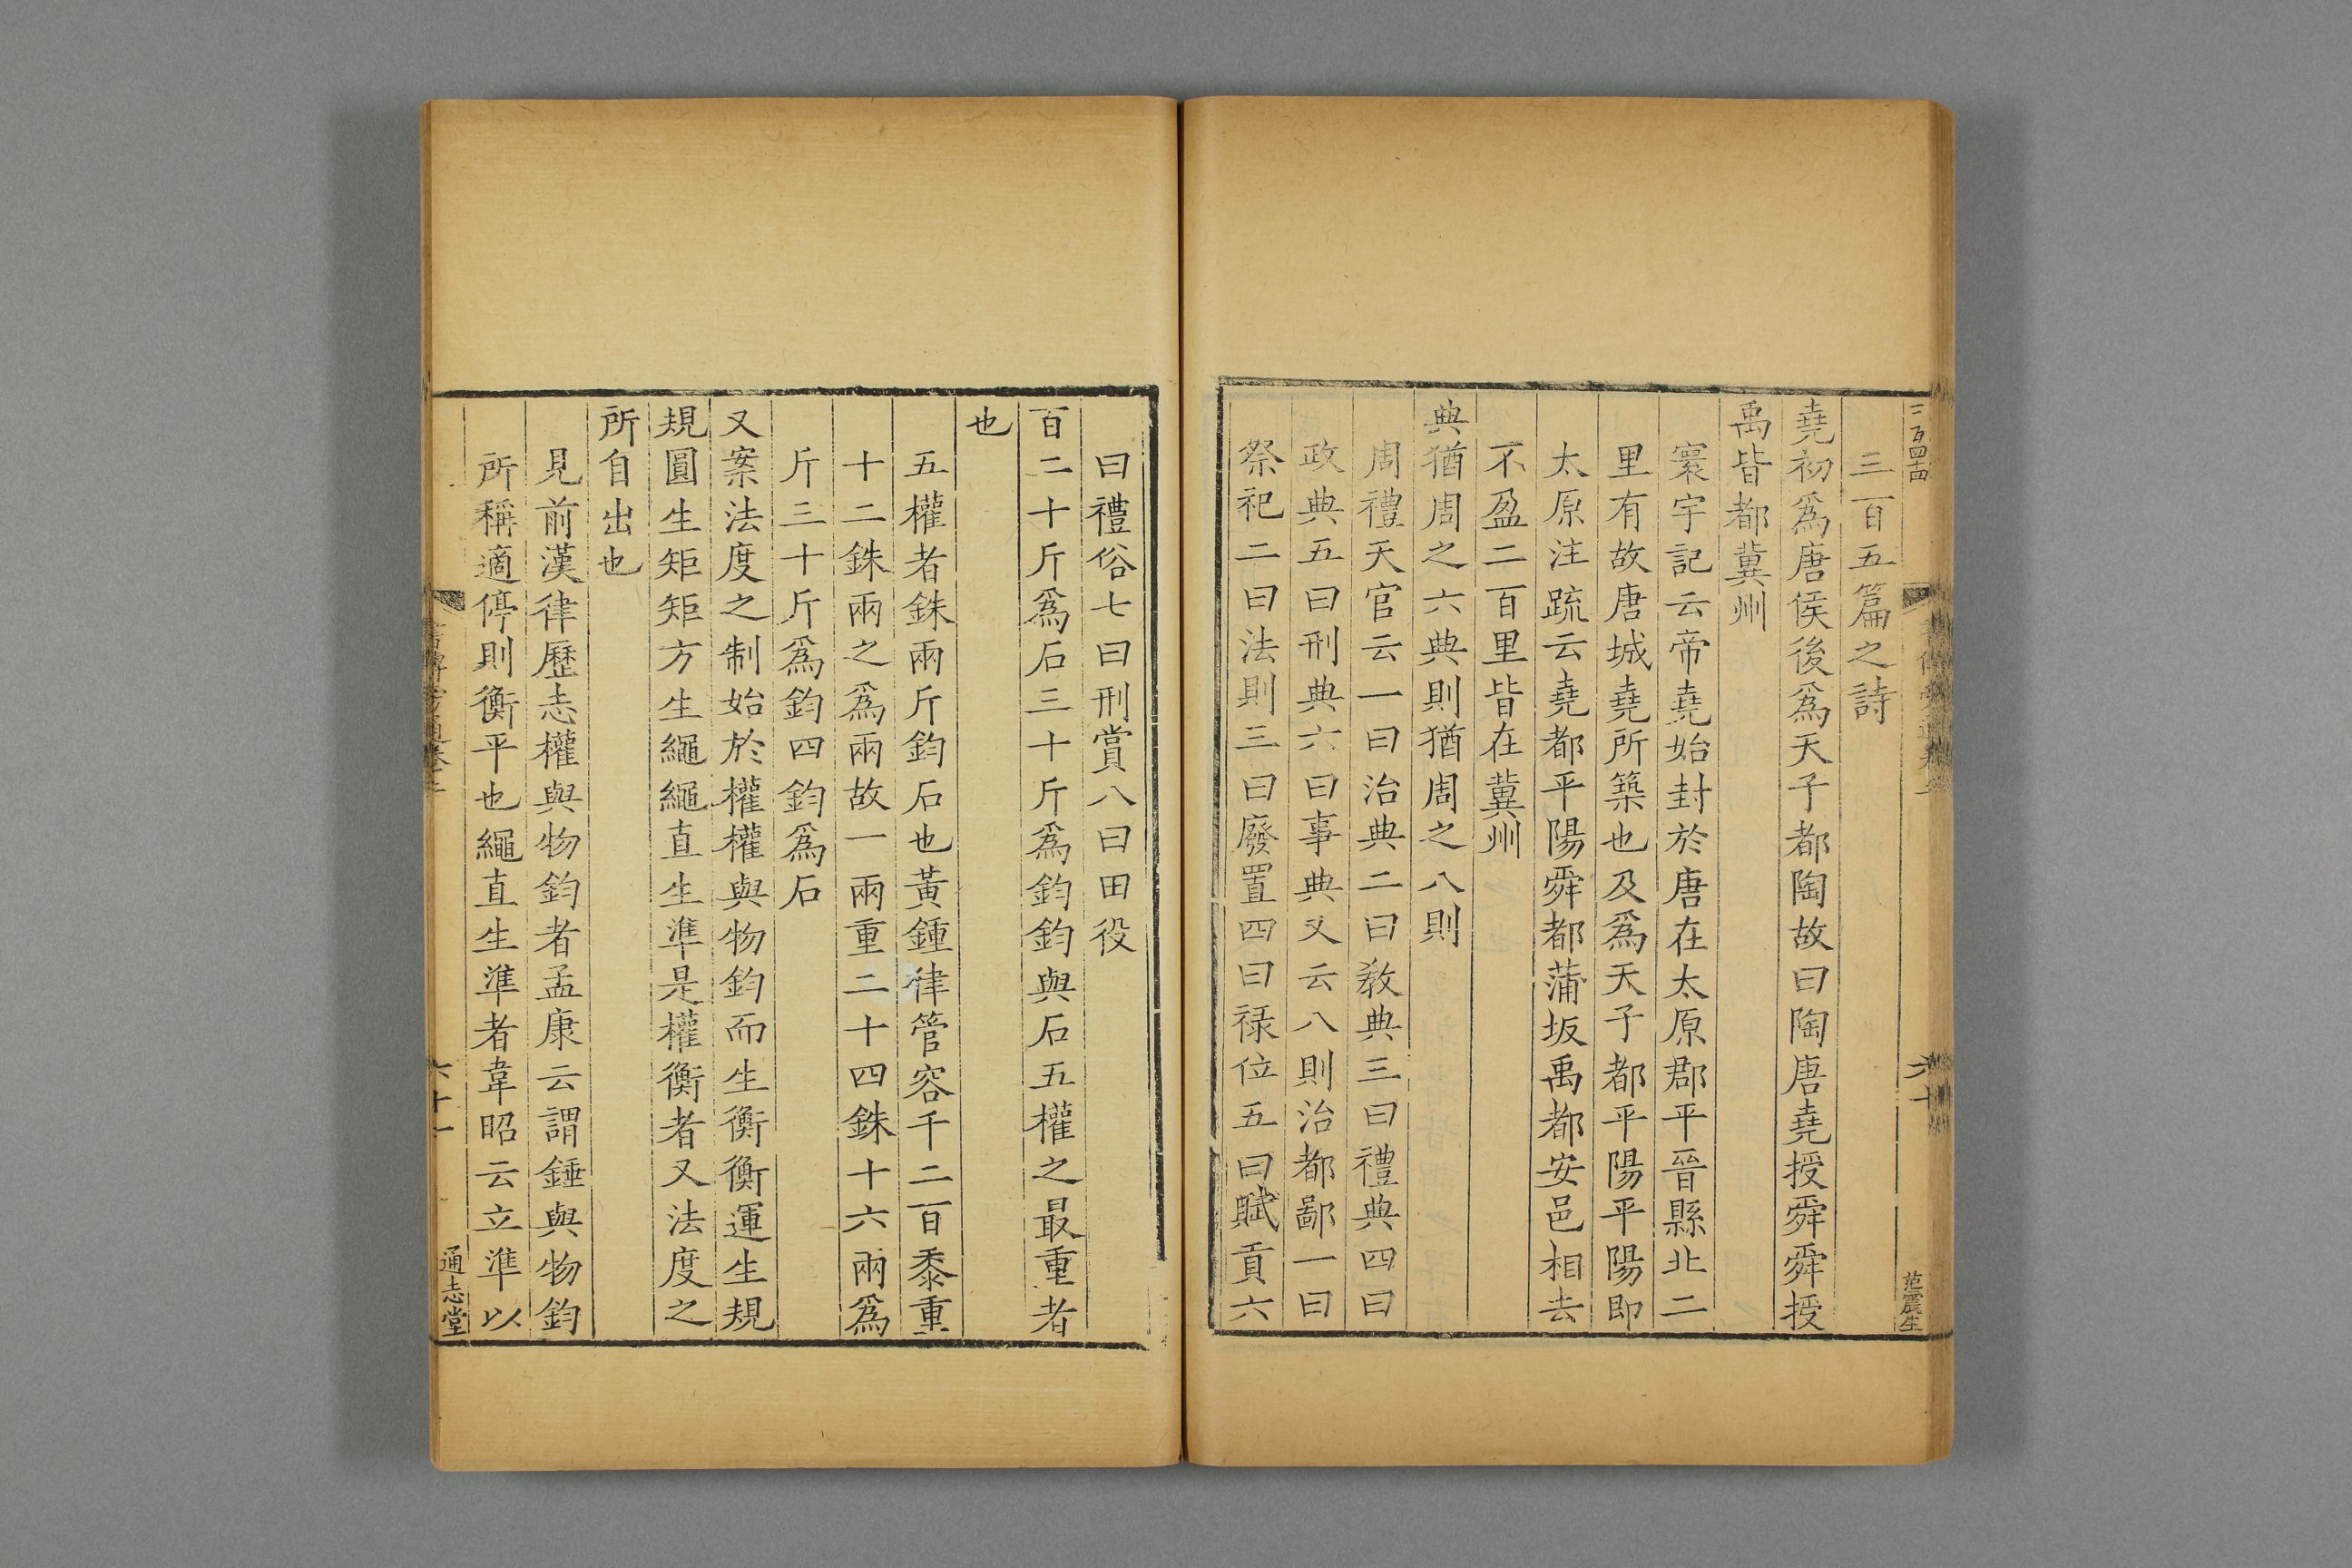 三百五篇之詩
堯初爲唐侯後爲天子都陶故曰陶唐堯授舜舜授
禹皆都冀州
寰宇記云帝堯始封於唐在太原郡平晉縣北二
里有故唐城堯所築也及爲天子都平陽平陽即
太原注疏云堯都平陽舜都蒲坂禹都安邑相去
不盈二百里皆在冀州
典猶周之六典則猶周之八則
周禮天官云一曰治典二曰教典三曰禮典四曰
政典五曰刑典六曰事典又云八則治都鄙一曰
祭祀二曰法則三曰廢置四曰禄位五曰賦貢六
范震生
曰禮俗七曰刑賞八曰田役
百二十斤爲石三十斤爲鈞鈞與石五權之最重者
也
五權者銖兩斤鈞石也黃鍾律管容千二百黍重
十二銖兩之爲兩故一兩重二十四銖十六兩爲
斤三十斤爲鈞四鈞爲石
又案法度之制始於權權與物鈞而生衡衡運生規
規圓生矩矩方生繩繩直生準是權衡者又法度之
所自出也
見前漢律歷志權與物鈞者孟康云謂錘與物鈞
所稱適停則衡平也繩直生準者韋昭云立準以
六十一
通志堂